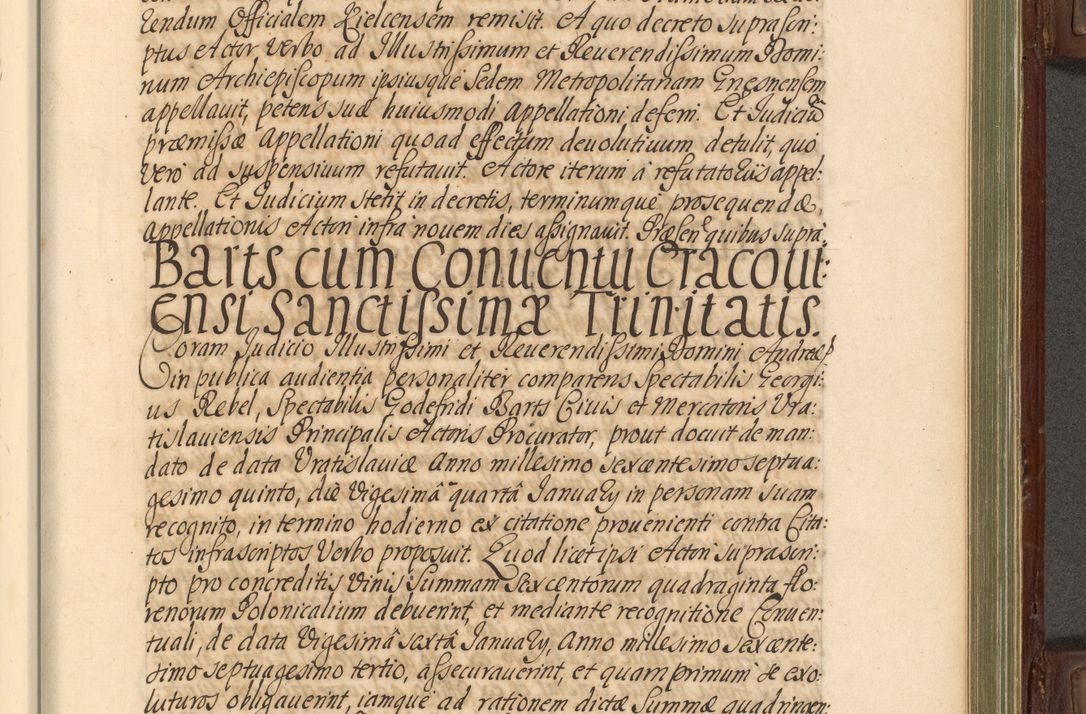 tendum Officialem Kielcensem remisit. A quo decreto suprascri:
ptus Actor verbo ad Illustrissimum et Reuerendissimum Domi:
num Archiepiscopum ipsiusque Sedem Metropolitanam Gnesnensem
appellauit, petens suæ huiusmodi appellationi deferri. Et Judiciũ
præmissæ appellationi quoad effectum deuolutiuum detulit, quo
vero ad suspensiuum refutauit. Actore iterum à refutatoriis appel:
lante. Et Judicium stetit in decretis, terminumque prosequendæ
appellationis Actori infra nouem dies assignauit. Præsen: quibus supra.
Barts cum Conuentu Cracoui:
ensi Sanctissimæ Trinitatis.
Coram Judicio Illustrissimi et Reuerendissimi Domini Andreæ
in publica audientia personaliter comparens Spectabilis Georgi:
us Rebel, Spectabilis Godefridi Barts Ciuis et Mercatoris Vra:
tislauiensis Principalis Actoris Procurator, prout docuit de man:
dato de data Vratislauiæ Anno millesimo sexcentesimo septua:
gesimo quinto, die Vigesimâ quartâ January in personam suam
recognito, in termino hodierno ex citatione prouenienti contra Cita:
tos infrascriptos Verbo proposuit. Quod licet ipsi Actori suprascri:
pto pro concreditis Vinis Summam Sexcentorum quadraginta flo:
renorum Polonicalium debuerint, et mediante recognitione Conuen:
tuali, de data Vigesimâ sextâ January, Anno millesimo sexcente:
simo septuagesimo tertio, assecurauerint, et quam primum se exo:
luturos obligauerint, iamque ad rationem dictæ Summæ quadringen: